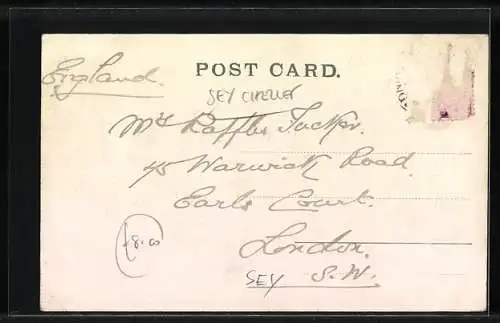 England.
POST CARD.
SEY
Mrs Raffles Tucker.
45 Warwick Road.
Earls Court.
London.
SEY S.W.